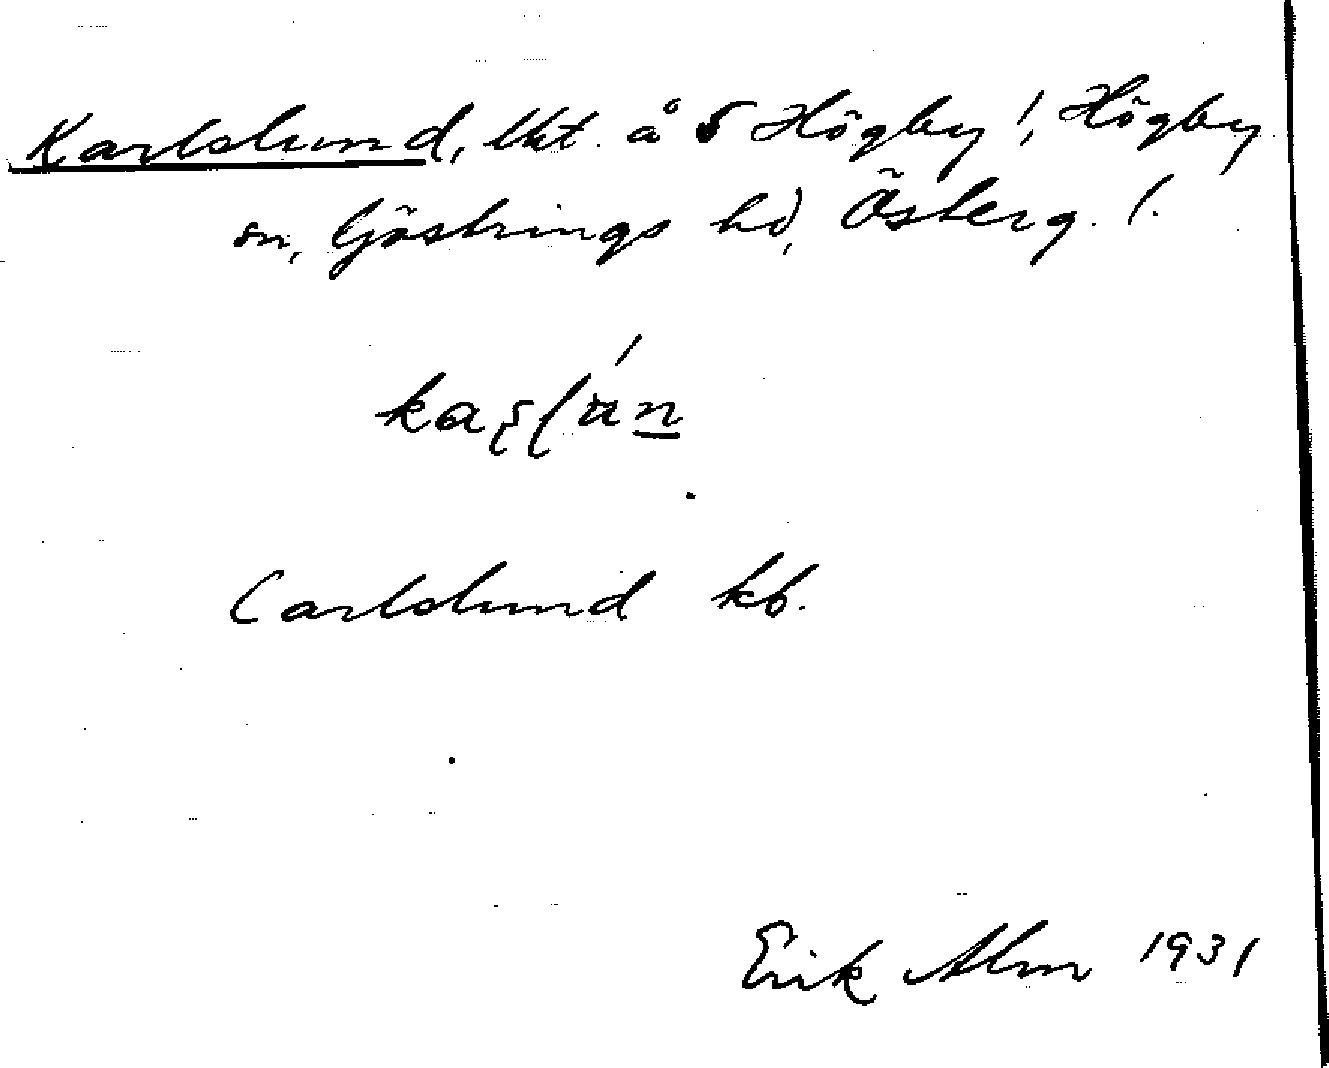 Karlslund, lht. å 5 Högby l, Högby
sn, Göstrings hd, Österg. l.
Carlslund kb.
Erik Alm 1931